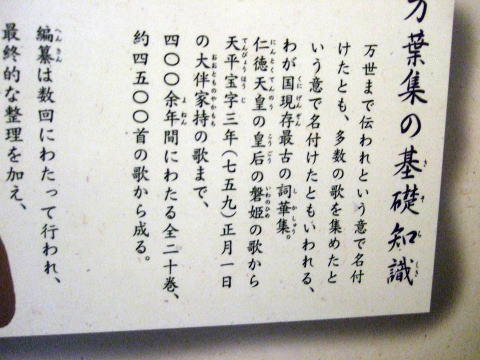 万葉集の基礎知識
万世まで伝われという意で名付
けたとも、多数の歌を集めたと
いう意で名付けたともいわれる、
わが国現存最古の詞華集。
仁徳天皇の皇后の磐姫の歌から
天平宝字三年(七五九)正月一日
の大伴家持の歌まで、
四〇〇余年間にわたる全二十巻、
約四五〇〇首の歌から成る。
編纂は数回にわたって行われ、
最終的な整理を加え、